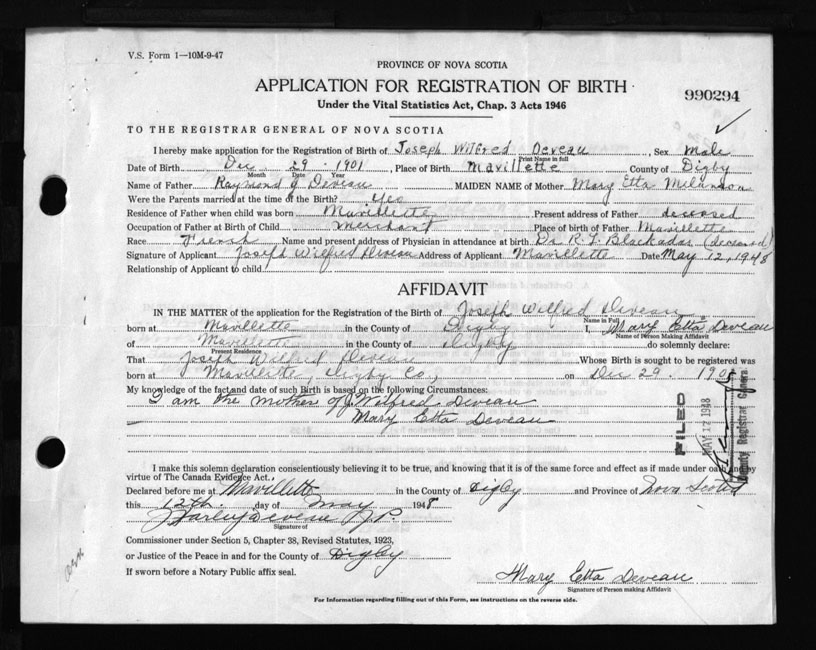 V.S. Form 1—10M-9-47
PROVINCE OF NOVA SCOTIA
APPLICATION FOR REGISTRATION OF BIRTH
Under the Vital Statistics Act, Chap. 3 Acts 1946
990294
TO THE REGISTRAR GENERAL OF NOVA SCOTIA
I hereby make application for the Registration of Birth of Joseph Wilfred Deveau, Sex Male
Print Name in full
Date of Birth Dec 29 - 1901, Place of Birth Mavillette County of Digby
Month Date Year
Name of Father Raymond J Deveau MAIDEN NAME of Mother Mary Etta
Were the Parents married at the time of the Birth? Yes
Residence of Father when child was born Mavillette Present address of Father deceased
Occupation of Father at Birth of Child Merchant Place of birth of Father Mavillette
Race French Name and present address of Physician in attendance at birth Dr. R. L. Blackadar (deceased)
Signature of Applicant Joseph Wilfred Deveau Address of Applicant Mavillette Date May 12, 1948
Relationship of Applicant to child
AFFIDAVIT
IN THE MATTER of the application for Registration of the Birth of Joseph Wilfred Deveau
Name in Full
born at Mavillette in the County of Digby I, Mary Etta Deveau
Name of Person Making Affidavit
of Mavillette in the County of Digby do solemnly declare:
Present Residence
That Joseph Wilfred Deveau Whose Birth is sought to be registered was
born at Mavillette, Digby Co., on Dec 29. 1901
My knowledge of the fact and date of such Birth is based on the following Circumstances:
I am the mother of J. Wilfred Deveau
Mary Etta Deveau
FILED
MAY 17 1948
County Registrar
I make this solemn declaration conscientiously believing it to be true, and knowing that it is of the same force and effect as if made under oath and by
virtue of The Canada Evidence Act.
Declared before me at Mavillette in the County of Digby and Province of Nova Scotia
this 12th day of May 1948
J.P.
Signature of
Commissioner under Section 5, Chapter 38, Revised Statutes, 1923,
or Justice of the Peace in and for the County of Digby
If sworn before a Notary Public affix seal.
Mary Etta Deveau
Signature of Person making Affidavit
For Information regarding filling out of this Form, see instructions on the reverse side.